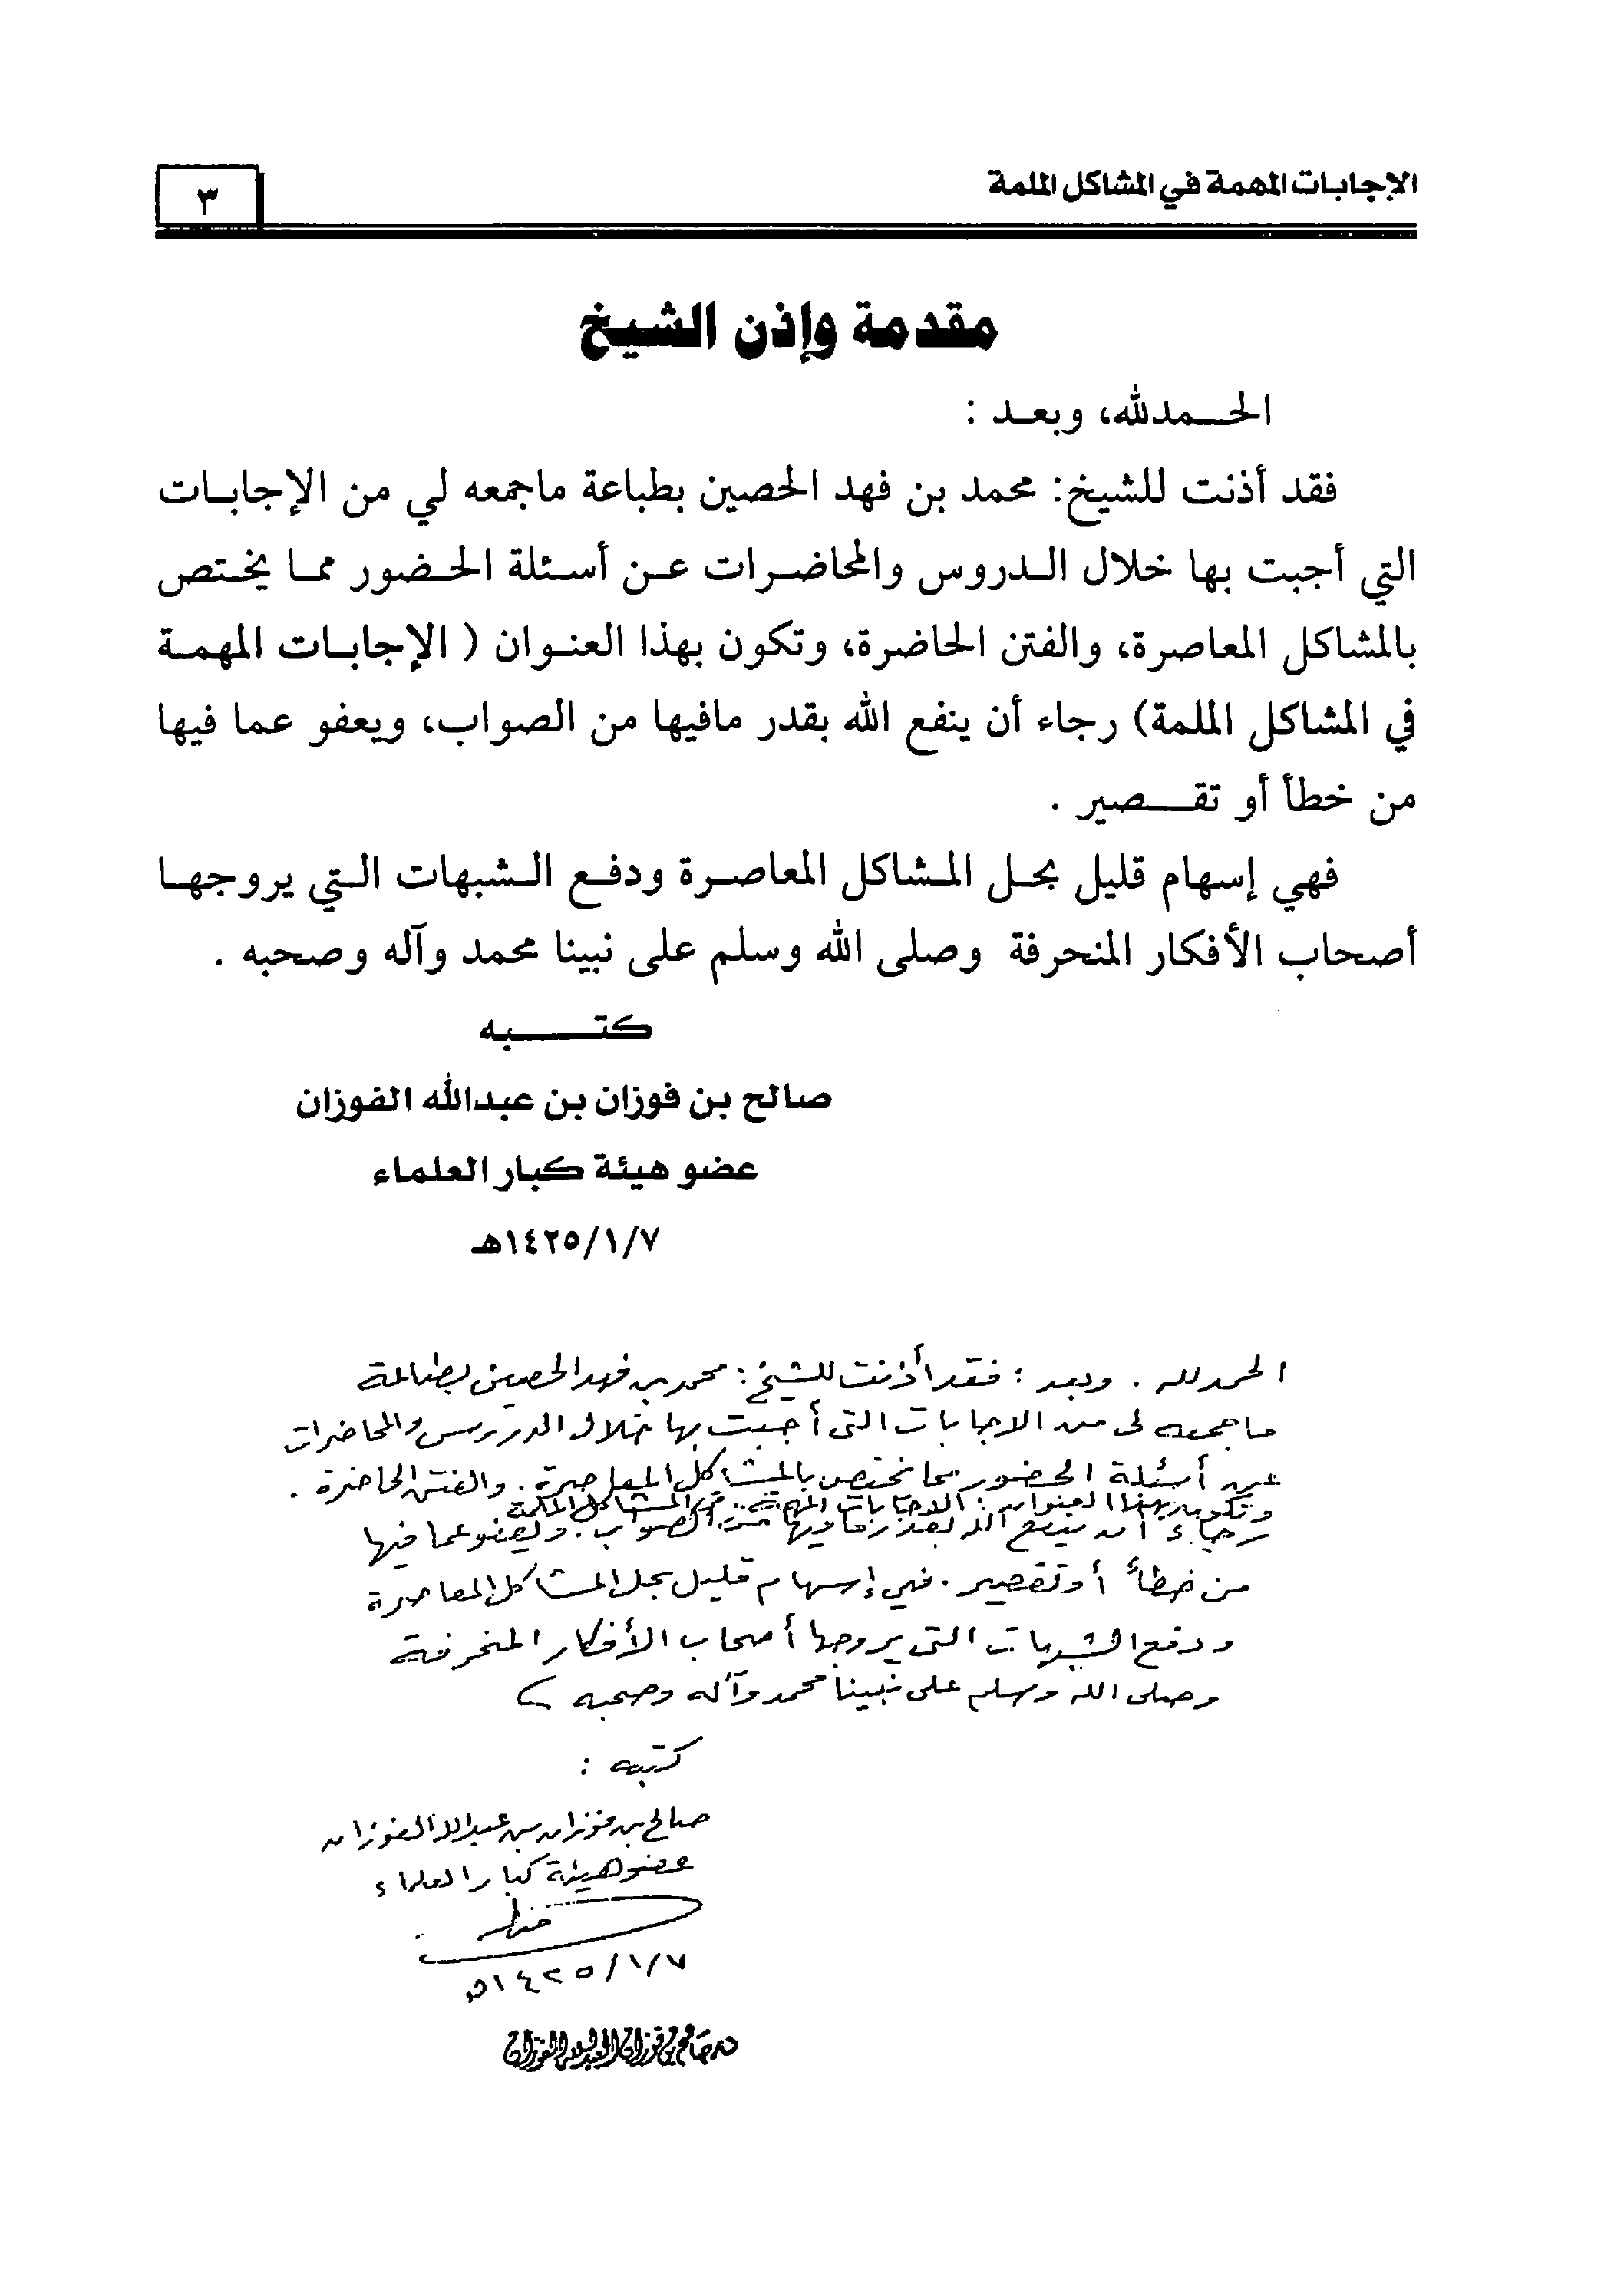 الإجابات المهمة في المشاكل الملمة
٣
مقدمة وإذن الشيخ
الحمدلله، وبعد :
فقد أذنت للشيخ: محمد بن فهد الحصين بطباعة ماجمعه لي من الإجابات
التي أجبت بها خلال الدروس والمحاضرات عن أسئلة الحضور مما يختص
بالمشاكل المعاصرة، والفتن الحاضرة، وتكون بهذا العنوان ( الإجابات المهمة
في المشاكل الملمة) رجاء أن ينفع الله بقدر مافيها من الصواب، ويعفو عما فيها
من خطأ أو تقصير .
فهي إسهام قليل بحل المشاكل المعاصرة ودفع الشبهات التي يروجها
أصحاب الأفكار المنحرفة وصلى الله وسلم على نبينا محمد وآله وصحبه .
كتبه
صالح بن فوزان بن عبدالله الفوزان
عضو هيئة كبار العلماء
١٤٢٥/١/٧هـ
الحمد لله . وبعد : فقد أذنت للشيخ : محمد بن فهد الحصين بطباعة
ما جمعه لي من الاجابات التي أجبت بها خلال الدروس والمحاضرات
عن أسئلة الحضور مما يختص بالمشاكل المعاصرة . والفتن الحاضرة .
وتكون بهذا العنوان : الاجابات المهمة .. في المشاكل الملمة
رجاء أن ينفع الله بقدر ما فيها من الصواب . ويعفو عما فيها
من خطأ أو تقصير . فهي إسهام قليل بحل المشاكل المعاصرة
ودفع الشبهات التي يروجها أصحاب الأفكار المنحرفة
وصلى الله وسلم على نبينا محمد وآله وصحبه
كتبه :
صالح بن فوزان بن عبدالله الفوزان
عضو هيئة كبار العلماء
١٤٢٥/١/٧هـ